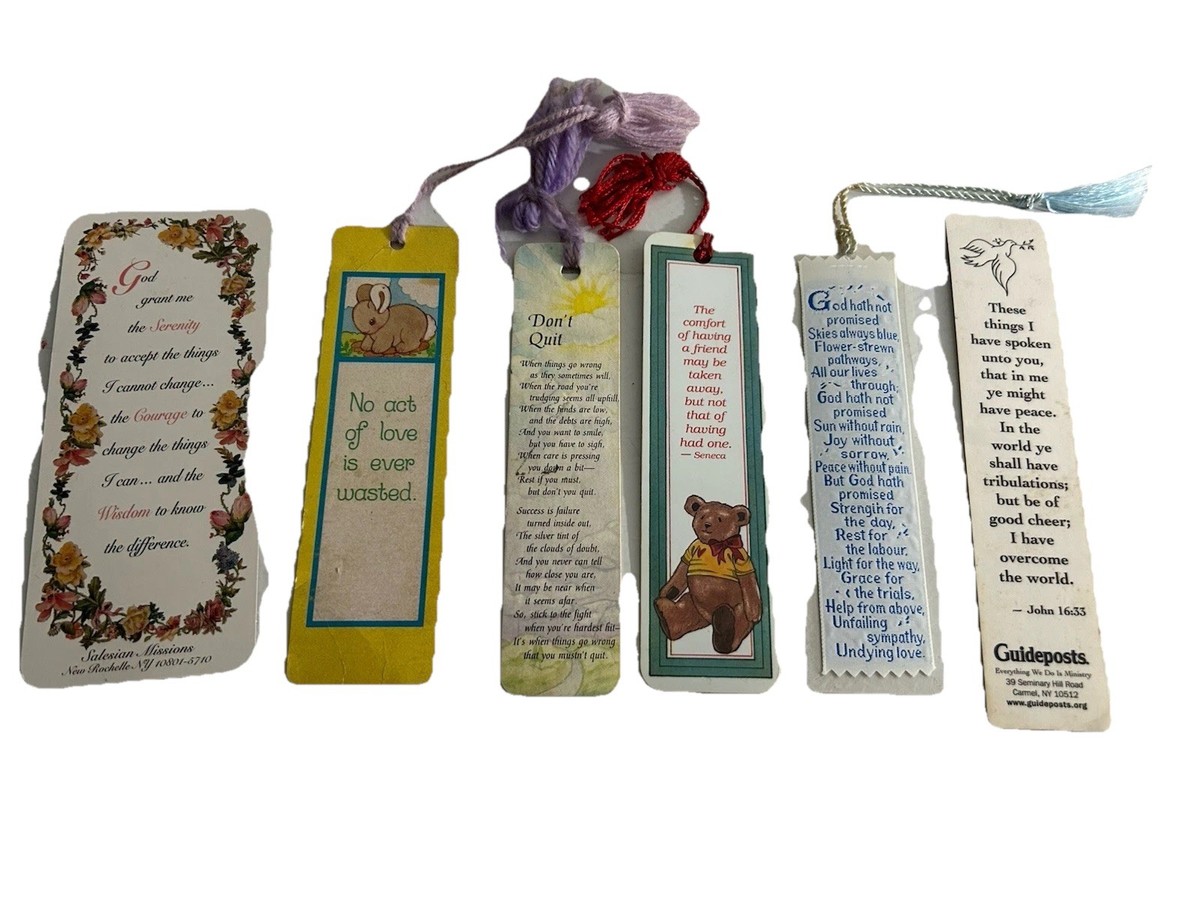 God
grant me
the Serenity
to accept the things
I cannot change...
the Courage to
change the things
I can... and the
Wisdom to know
the difference.
Salesian Missions
New Rochelle NY 10801-5710
No act
of love
is ever
wasted.
Don't
Quit
When things go wrong
as they sometimes will,
When the road you're
trudging seems all uphill,
When the funds are low,
and the debts are high,
And you want to smile,
but you have to sigh,
When care is pressing
you down a bit—
Rest if you must,
but don't you quit.
Success is failure
turned inside out,
The silver tint of
the clouds of doubt,
And you never can tell
how close you are,
It may be near when
it seems afar.
So, stick to the fight
when you're hardest hit—
It's when things go wrong
that you mustn't quit.
The
comfort
of having
a friend
may be
taken
away,
but not
that of
having
had one.
— Seneca
God hath not
promised
Skies always blue,
Flower-strewn
pathways,
All our lives
through;
God hath not
promised
Sun without rain,
Joy without
sorrow,
Peace without pain.
But God hath
promised
Strength for
the day,
Rest for
the labour,
Light for the way,
Grace for
the trials,
Help from above,
Unfailing
sympathy,
Undying love.
These
things I
have spoken
unto you,
that in me
ye might
have peace.
In the
world ye
shall have
tribulations;
but be of
good cheer;
I have
overcome
the world.
— John 16:33
Guideposts.
Everything We Do Is Ministry
39 Seminary Hill Road
Carmel, NY 10512
www.guideposts.org